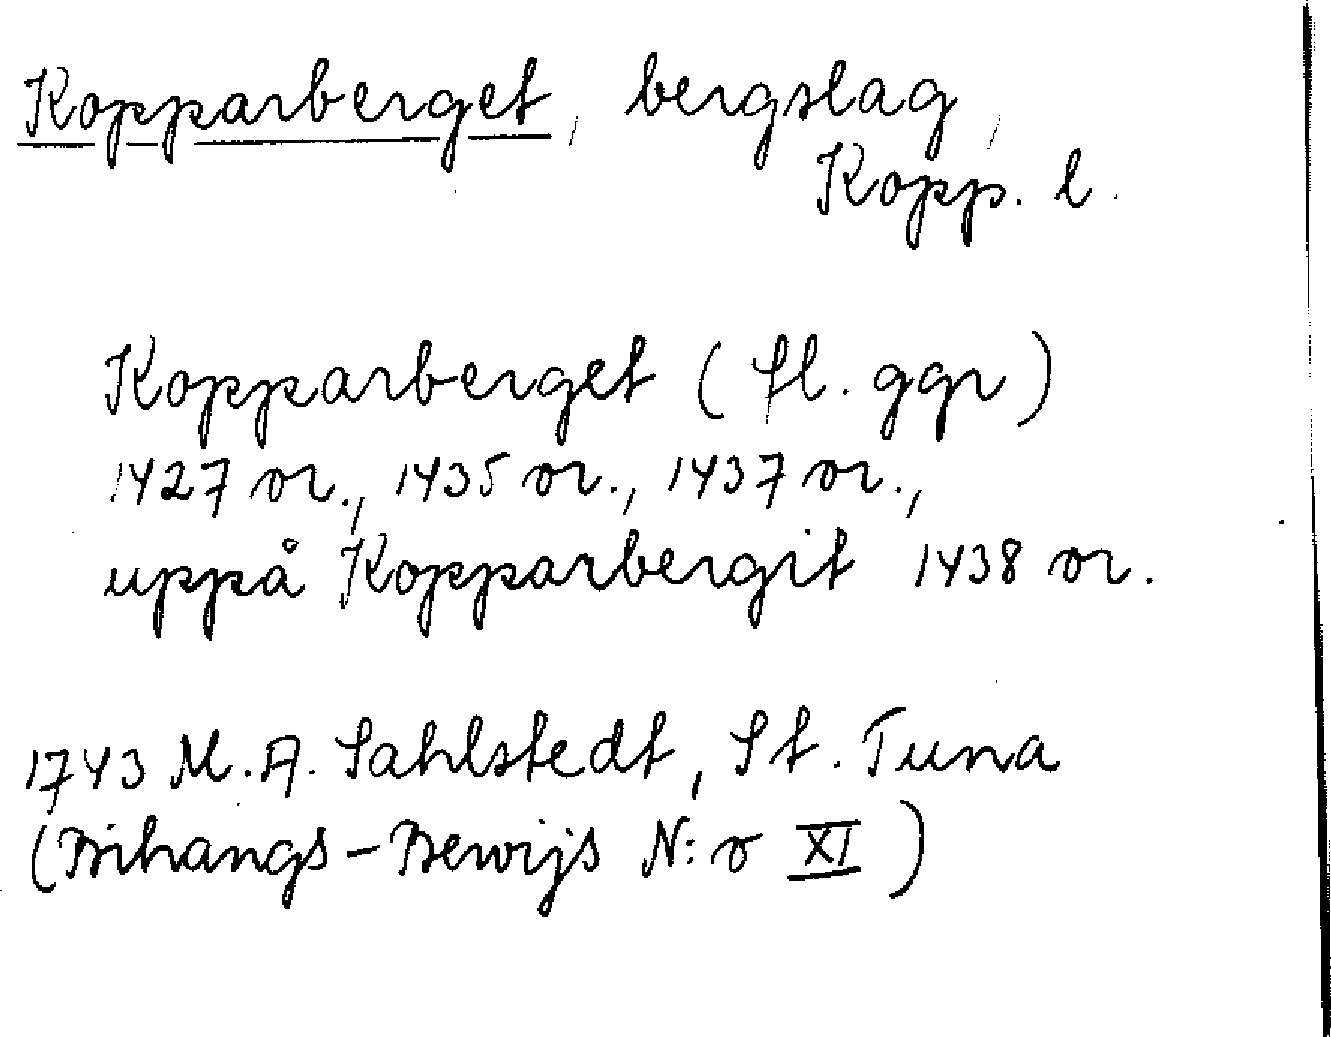 Kopparberget, bergslag,
Kopp. l.
Kopparberget (fl. ggr)
1427 or., 1435 or., 1437 or.,
uppå Kopparbergit 1438 or.
1743 M. A. Sahlstedt, St. Tuna
(Bihangs-Bewijs N:o XI)